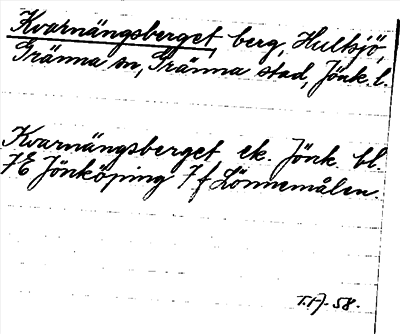 Kvarnängsberget, berg, Hultsjö,
Gränna sn, Gränna stad, Jönk. l.
Kvarnängsberget ek. Jönk. bl.
7E Jönköping 7f Lönnemålen.
T.A-58.